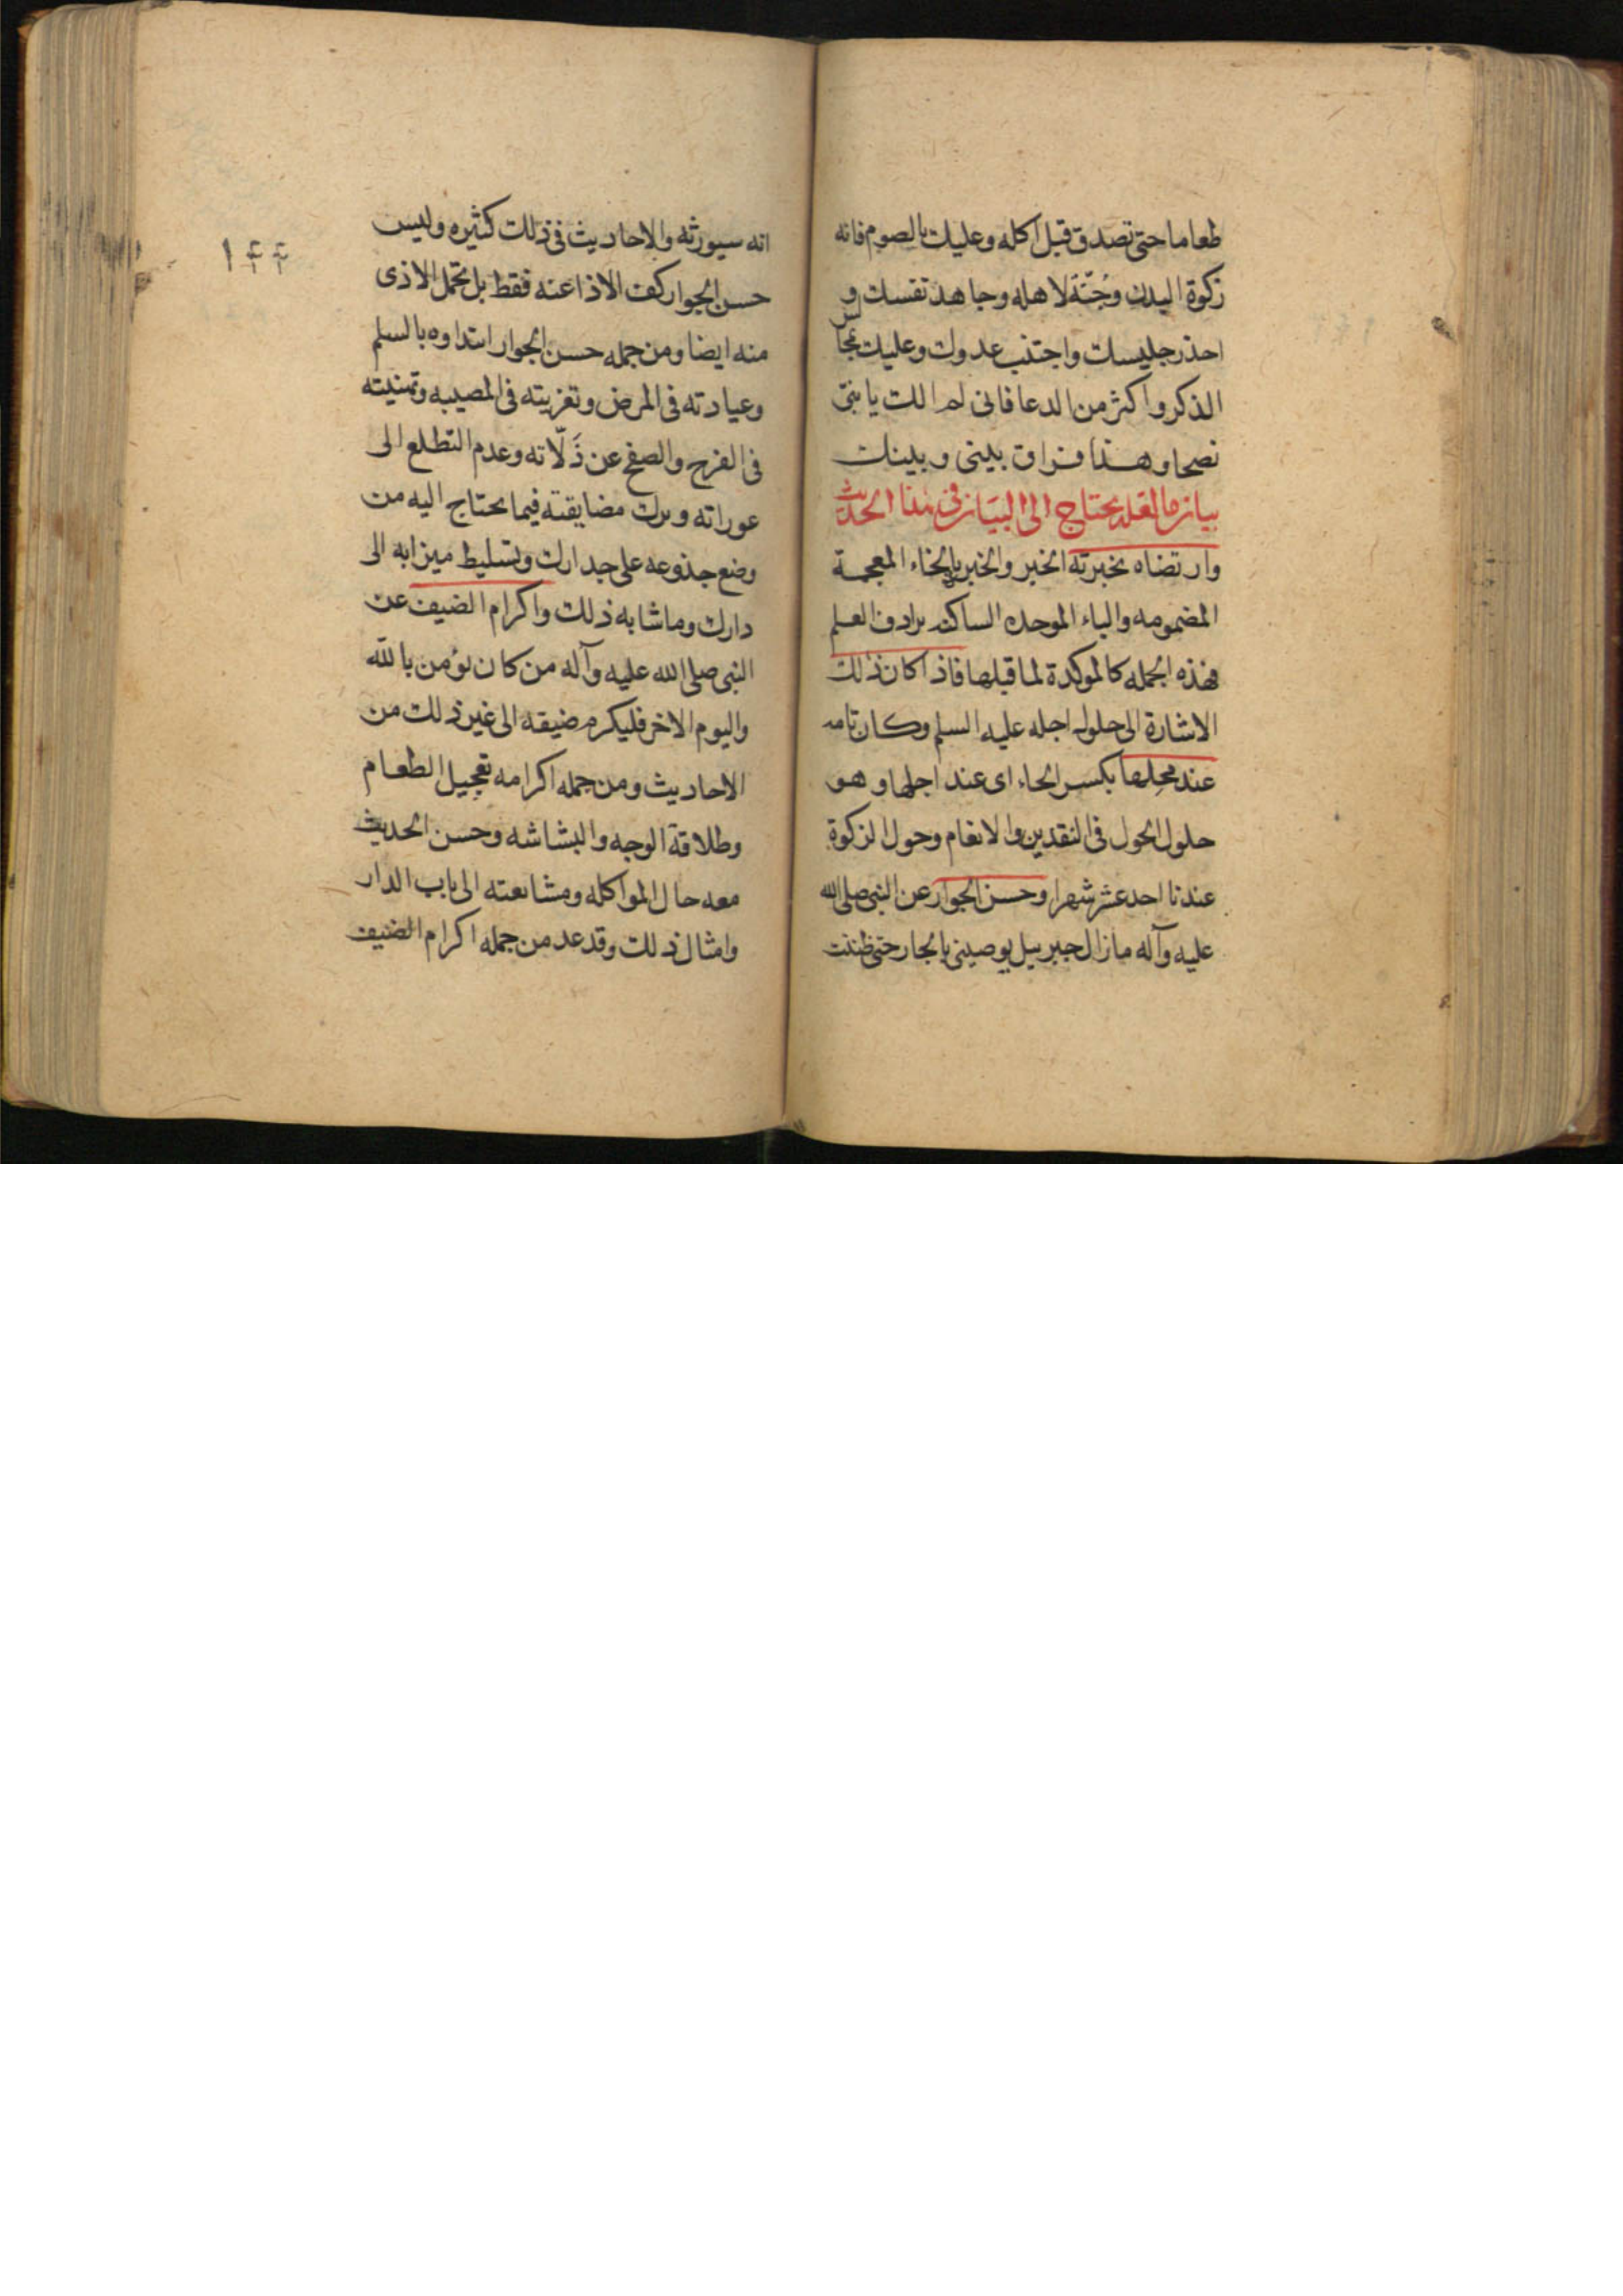 طعاما حتى تصدق قبل اكله وعليك بالصوم فانه
زكوة البدن وجُنّة لاهله وجاهد نفسك و
احذر جليسك واجتنب عدوك وعليك بمجالس
الذكر واكثر من الدعا فانى لم الك يا بنىّ
نصحا وهذا فراق بينى وبينك
بيان ما لعله يحتاج الى البيان فى هذا الحديث
وارتضاه بخبرته الخبر والخبر بالخاء المعجمة
المضمومه والباء الموحده الساكنه يرادف العلم
فهذه الجمله كالموكدة لما قبلها فاذا كان ذلك
الاشارة الى حلول اجله عليه السلم وكان تامه
عند محِلها بكسر الحاء اى عند اجلها وهو
حلول الحول فى النقدين والانعام وحول الزكوة
عندنا احد عشر شهرا وحسن الجوار عن النبى صلى الله
عليه وآله ما زال جبرييل يوصينى بالجار حتى ظننت
١۴۴
انه سيورثه والاحاديث فى ذلك كثيره وليس
حسن الجوار كف الاذا عنه فقط بل تحمل الاذى
منه ايضا ومن جمله حسن الجوار ابتداوه بالسلم
وعيادته فى المرض وتعزيته فى المصيبه وتهنيته
فى الفرح والصفح عن زَلّاته وعدم التطلع الى
عوراته وترك مضايقته فيما يحتاج اليه من
وضع جذوعه على جدارك وتسليط ميزابه الى
دارك وما شابه ذلك واكرام الضيف عن
النبى صلى الله عليه وآله من كان يؤمن بالله
واليوم الاخر فليكرم ضيفه الى غير ذلك من
الاحاديث ومن جمله اكرامه تعجيل الطعام
وطلاقة الوجه والبشاشه وحسن الحديث
معه حال المواكله ومشايعته الى باب الدار
وامثال ذلك وقد عد من جمله اكرام الضيف